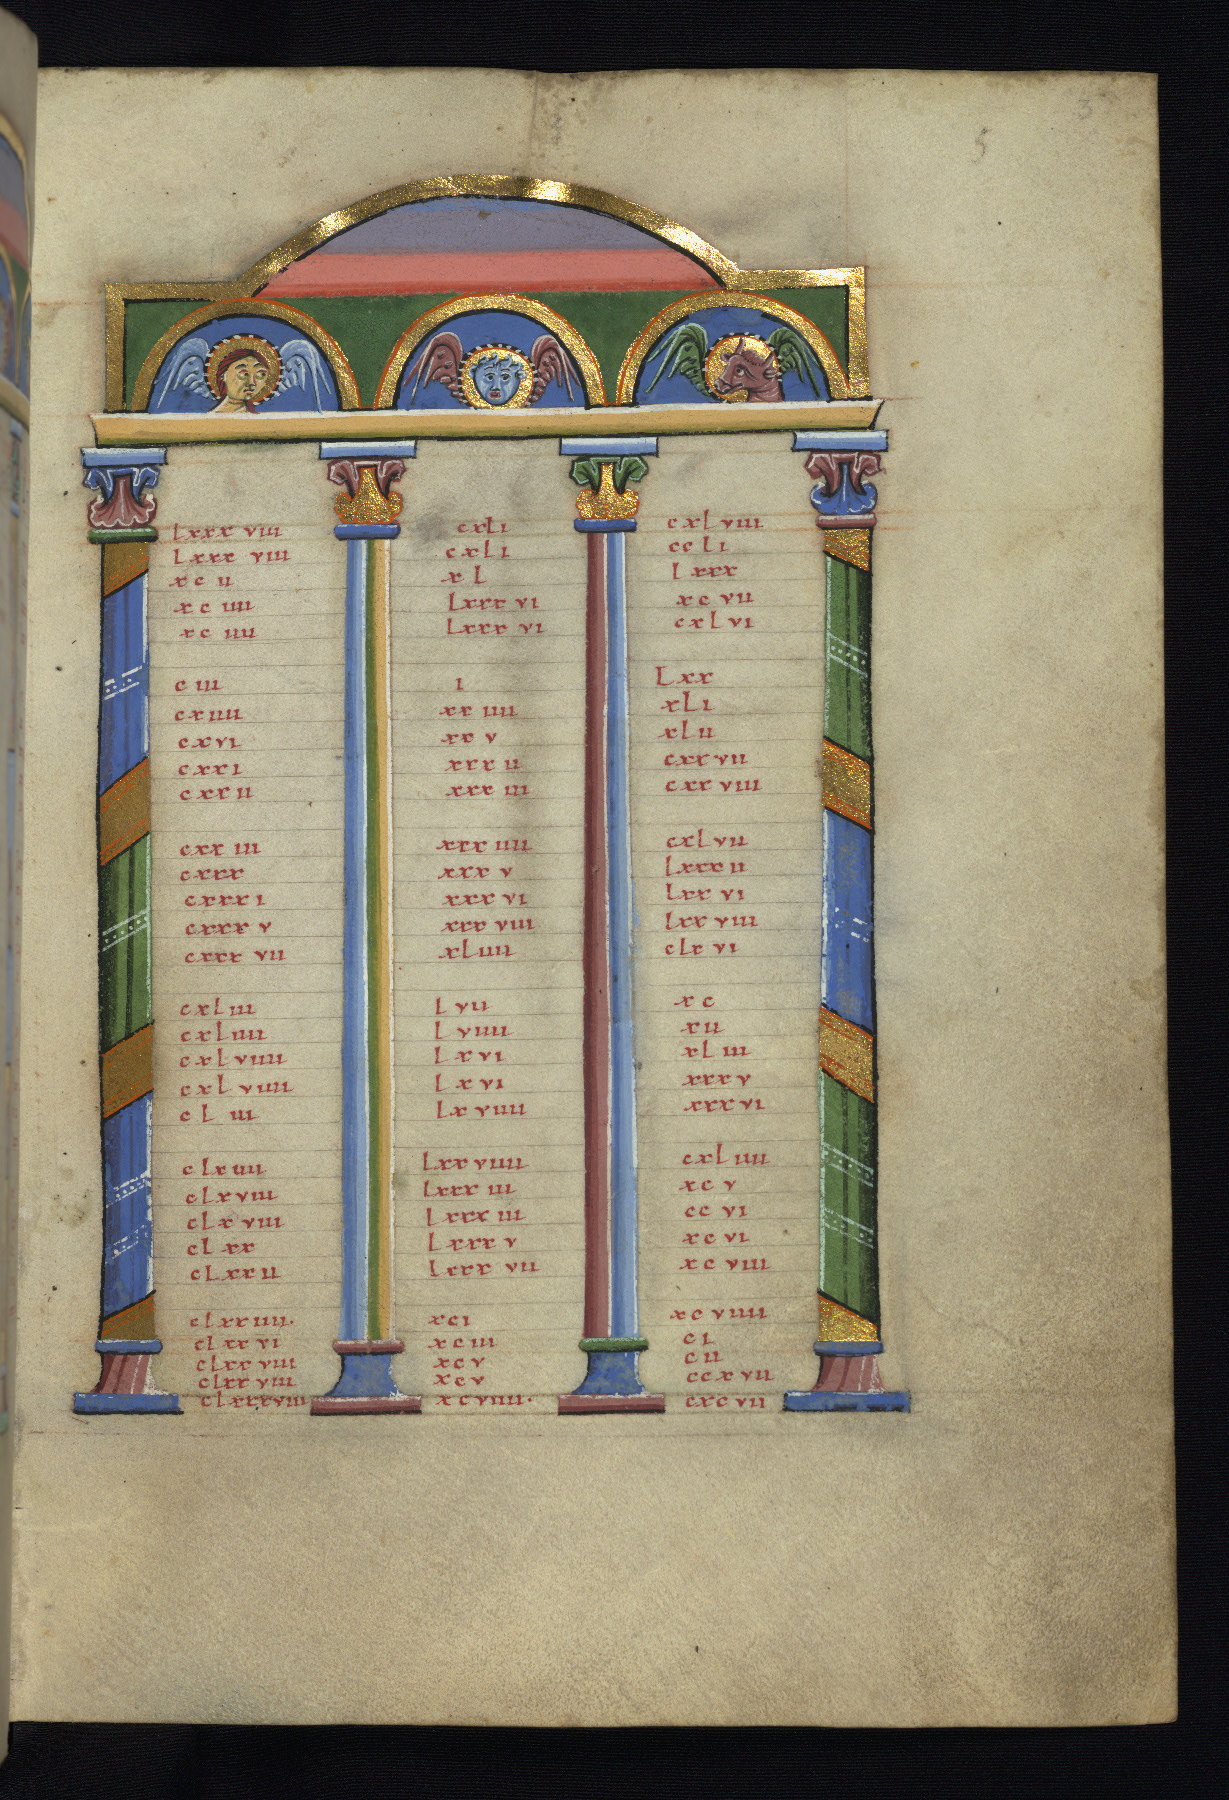 3
5
Lxxx viii cxLi cxLviii
Lxxx viii cxLi ccLi
xc ii xL Lxxx
xc iiii Lxxx vi xc vii
xc iiii Lxxx vi cxLvi
c iii i Lxx
cxiiii xx iiii xLi
cxvi xx v xLii
cxxi xxx ii cxx vii
cxx ii xxx iii cxx viii
cxx iii xxx iiii cxLvii
cxxx xxx v Lxxx ii
cxxx i xxx vi Lxx vi
cxxx v xxx viii Lxx viii
cxxx vii xLiiii cLx vi
cxLiii Lvii xc
cxLiiii Lviiii xii
cxLviiii Lxvi xLiii
cxLviiii Lxvi xxx v
cL iii Lxviiii xxx vi
cLxiiii Lxx viiii cxLiiii
cLxviii Lxxx iii xc v
cLxviii Lxxx iii cc vi
cLxx Lxxx v xc vi
cLxx ii Lxxx vii xc viii
cLxx iiii. xci xc viiii
cLxx vi xc iii ci
cLxx viii xc v c ii
cLxx viii xc v ccx vii
cLxxxviii xc viiii. cxc vii